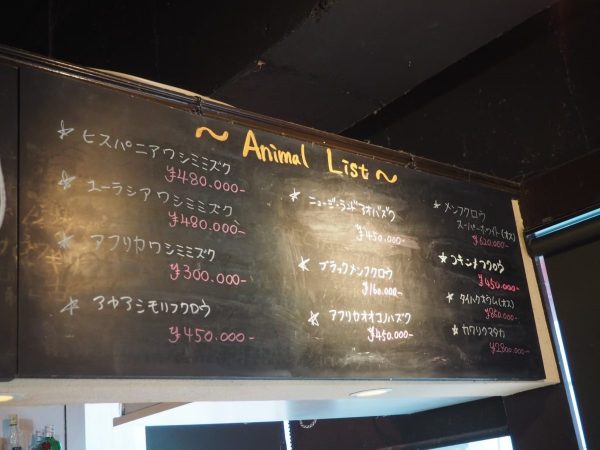 ~ Animal List ~
☆ ヒスパニアワシミミズク
¥480.000-
☆ ユーラシアワシミミズク
¥480.000-
☆ アフリカワシミミズク
¥300.000-
☆ アカアシモリフクロウ
¥450.000-
☆ ニュージーランドアオバズク
¥450.000-
☆ ブラックメンフクロウ
¥160.000-
☆ アフリカオオコノハズク
¥450.000-
☆ メンフクロウ
スーパーホワイト(オス)
¥620.000-
☆ コキンメフクロウ
¥450.000-
☆ タイハクオウム(オス)
☆ カワリクマタカ
¥2800.000-